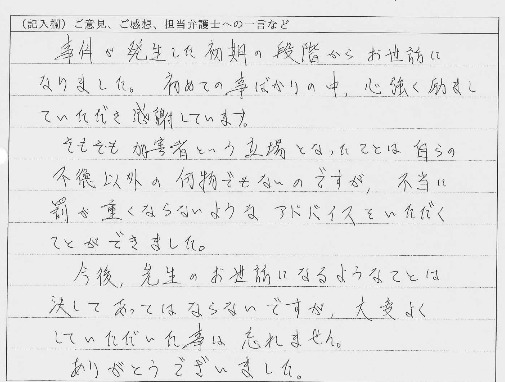 (記入欄) ご意見、ご感想、担当弁護士への一言など
事件が発生した初期の段階からお世話に
なりました。初めての事ばかりの中、心強く励まし
ていただき感謝しています。
そもそも加害者という立場となったことは自らの
不徳以外の何物でもないのですが、不当に
罰が重くならないようなアドバイスをいただく
ことができました。
今後、先生のお世話になるようなことは
決してあってはならないですが、大変よく
していただいた事は忘れません。
ありがとうございました。